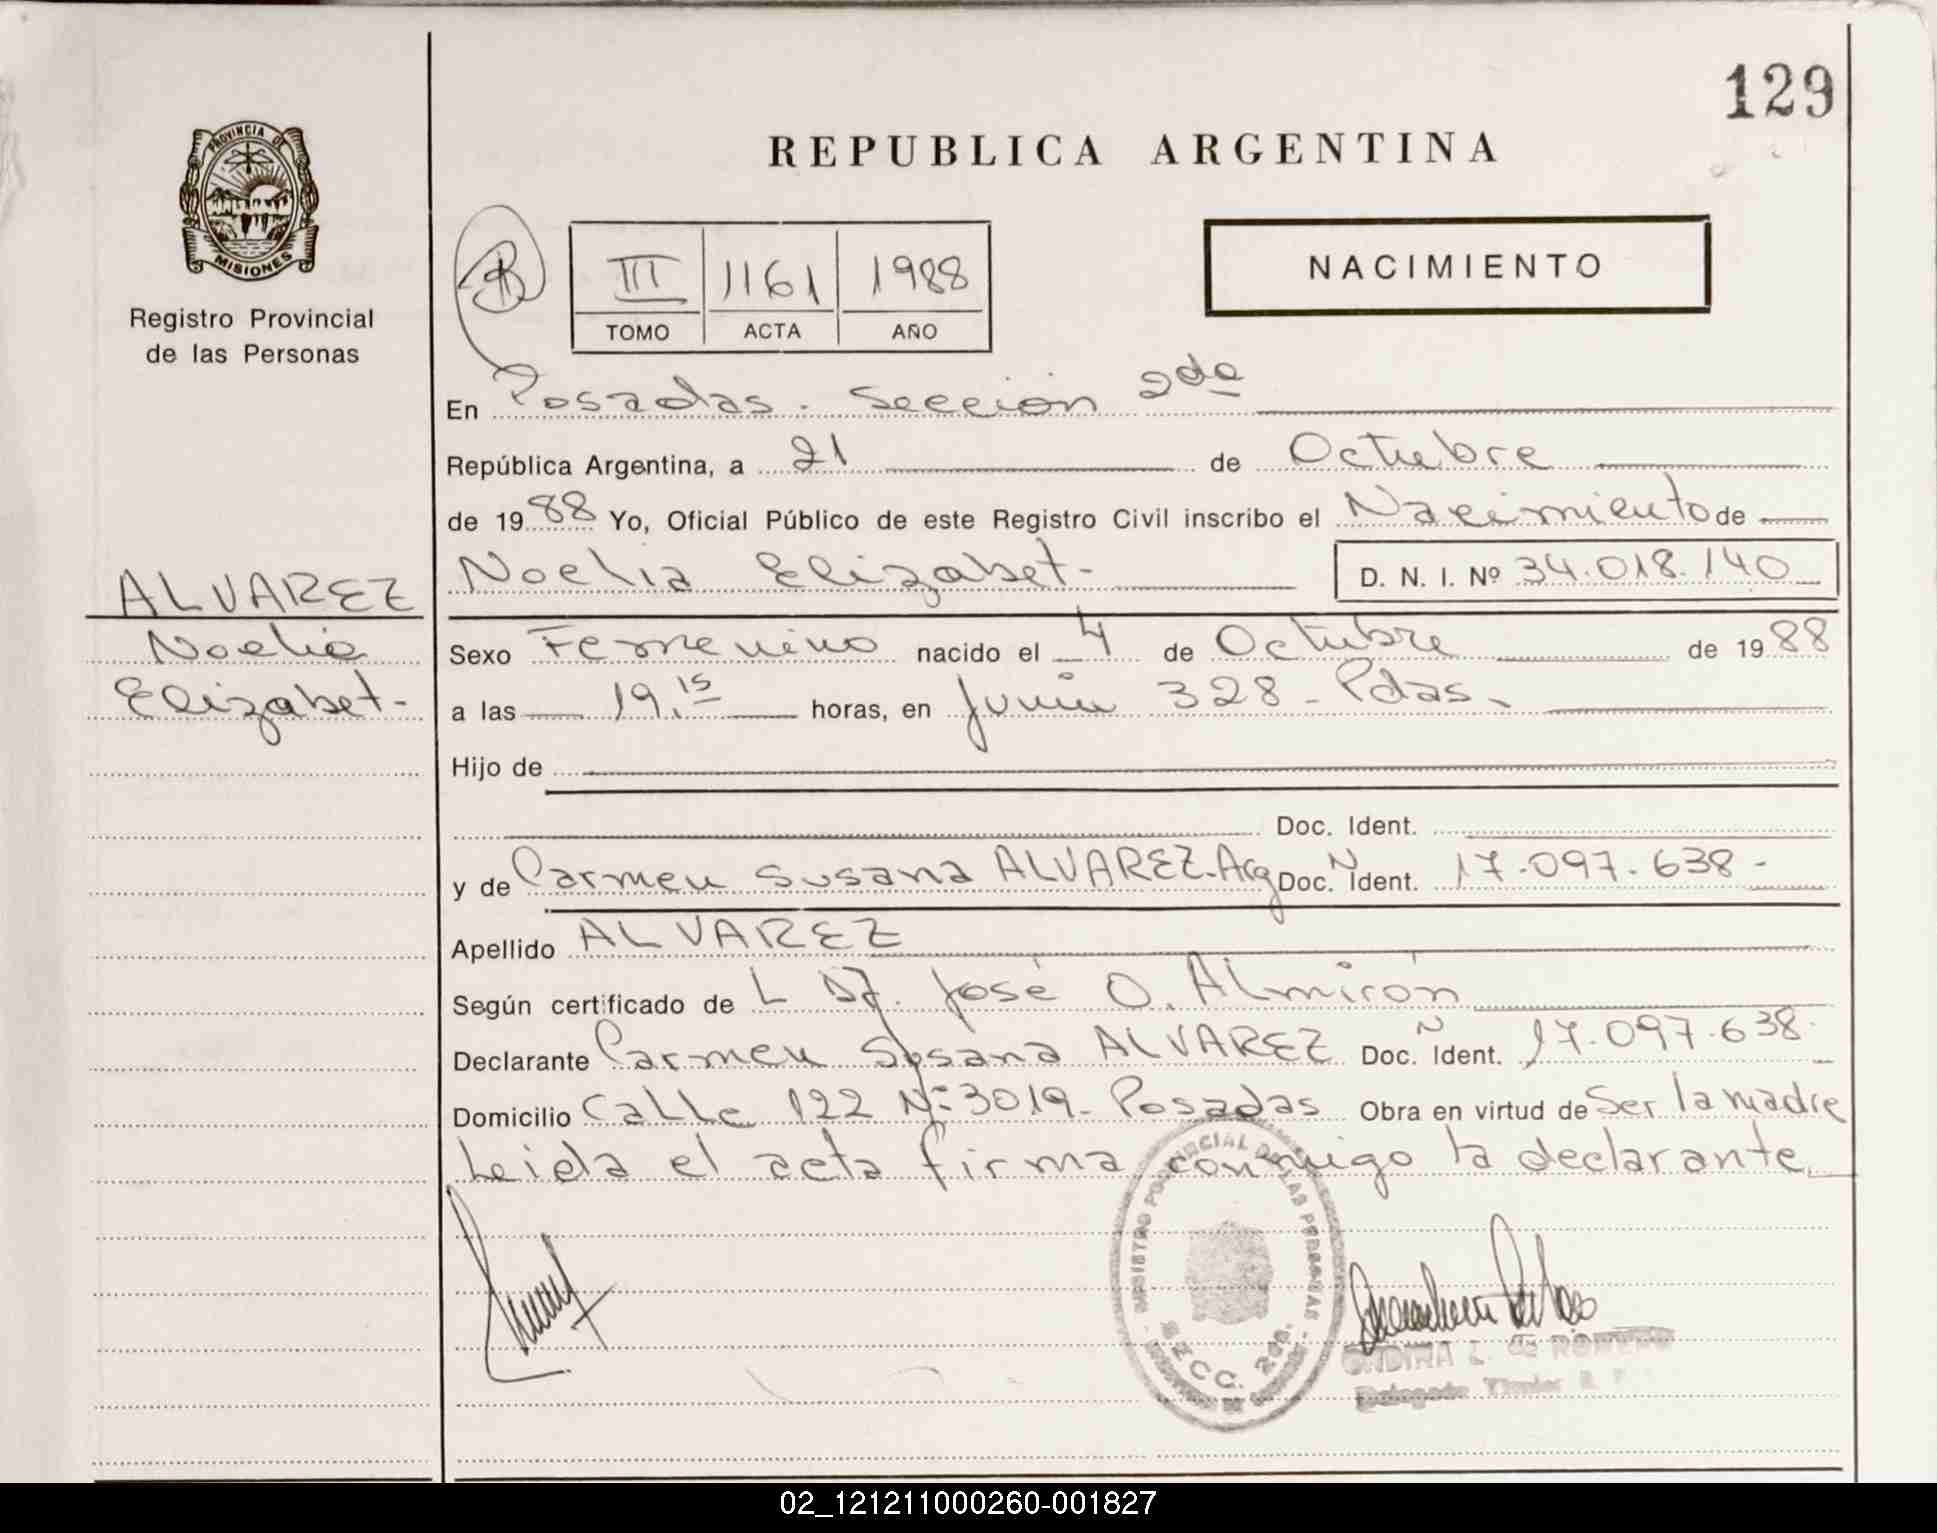 129
PROVINCIA DE
MISIONES
Registro Provincial
de las Personas
REPUBLICA ARGENTINA
III 1161 1988
TOMO ACTA AÑO
NACIMIENTO
En Posadas. Sección 2da
República Argentina, a 21 de Octubre
de 1988 Yo, Oficial Público de este Registro Civil inscribo el Nacimiento de
Noelia Elizabet- D. N. I. Nº 34.018.140
ALVAREZ
Noelia
Elizabet-
Sexo Femenino nacido el 4 de Octubre de 1988
a las 19.15 horas, en Junin 328 - Pdas.
Hijo de
Doc. Ident.
y de Carmen Susana ALVAREZ-Arg Doc. N Ident. 17.097.638-
Apellido ALVAREZ
Según certificado de José O. Almirón
Declarante Carmen Susana ALVAREZ Doc. N Ident. 17.097.638-
Domicilio Calle 122 Nº 3019- Posadas Obra en virtud de Ser la madre
Leida el acta firma conmigo la declarante
SECC. 2da.
ONDINA L. de ROMERO
02_121211000260-001827